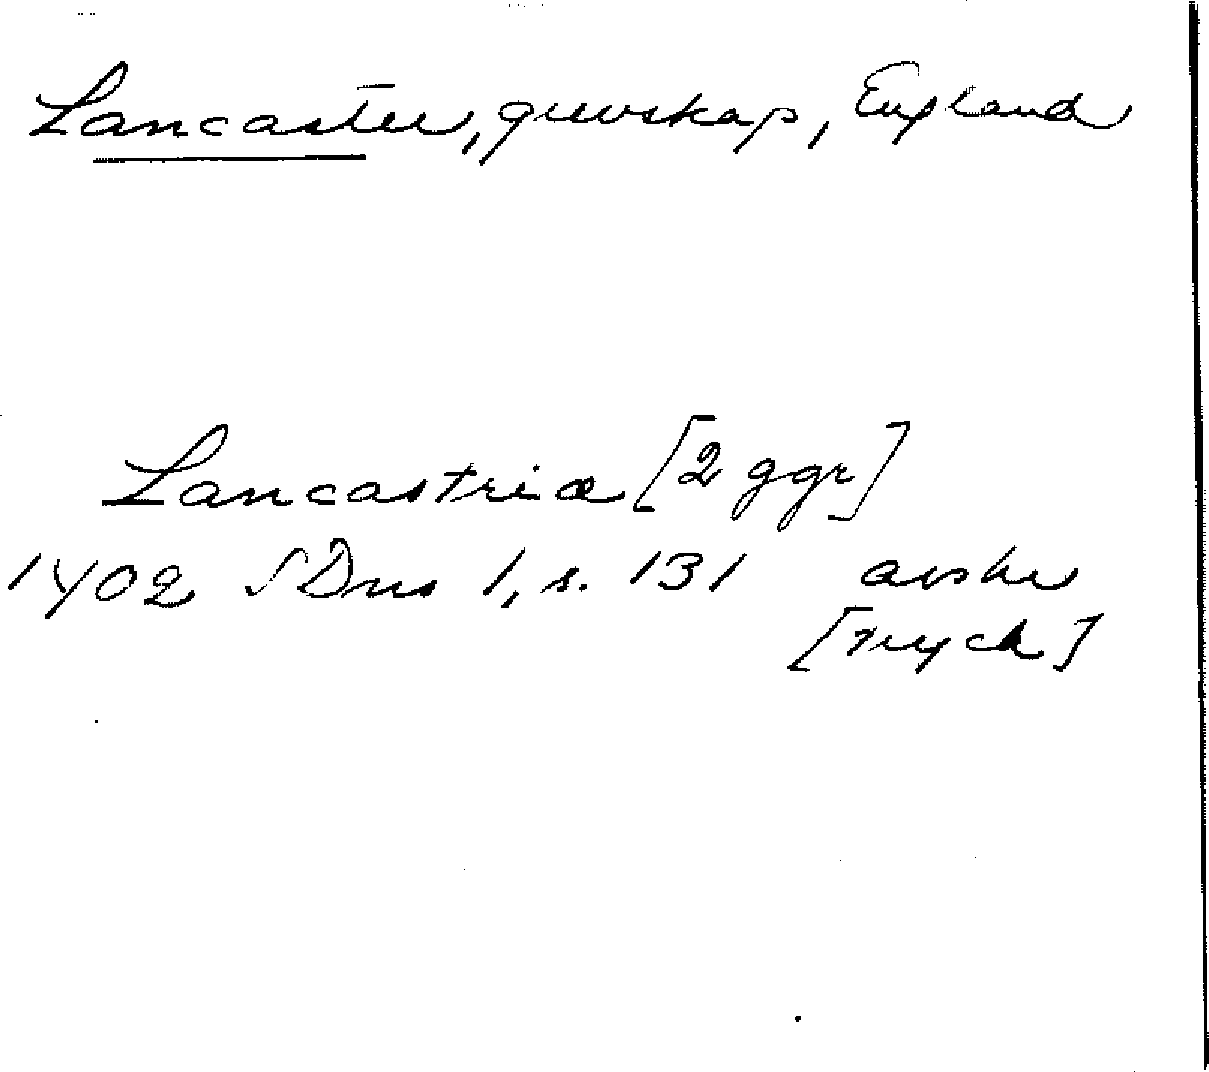 Lancaster, grevskap, England
Lancastriæ [2 ggr]
1402 SDns 1, s. 131 avskr
[tryck]